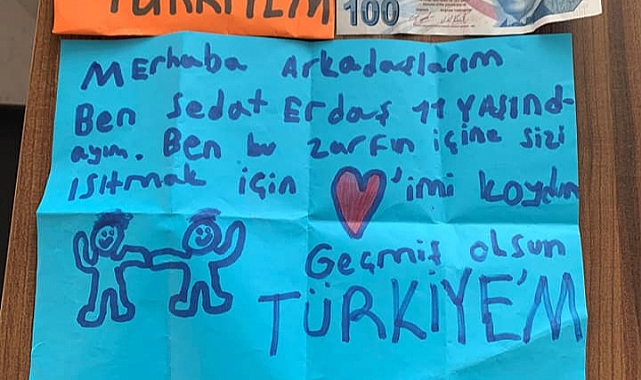 TÜRKİYEM
100
Merhaba Arkadaşlarım
Ben Sedat Erdaş 11 YAŞIND-
ayım. Ben bu zarfın içine sizi
ısıtmak için 'imi koydum
Geçmiş olsun
TÜRKİYE'M